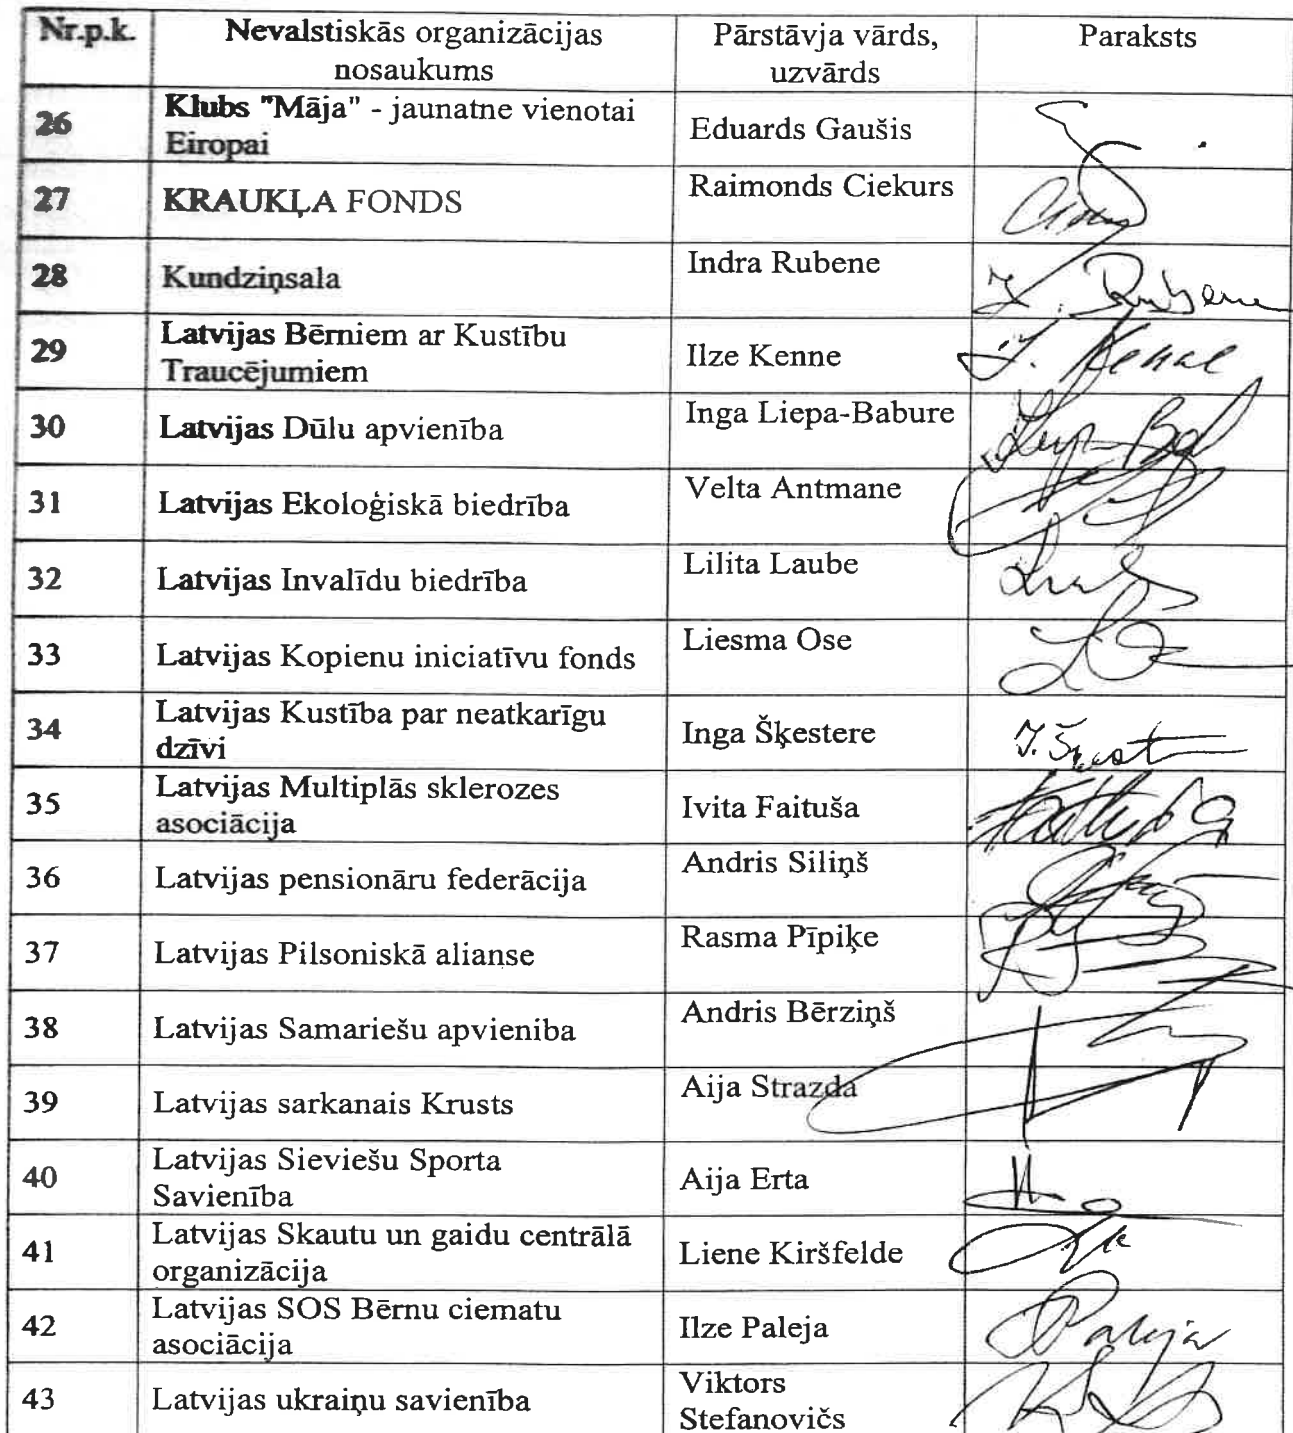 Nr.p.k. Nevalstiskās organizācijas Pārstāvja vārds, Paraksts
nosaukums uzvārds
26 Klubs "Māja" - jaunatne vienotai Eduards Gaušis
Eiropai
27 KRAUKĻA FONDS Raimonds Ciekurs
28 Kundziņsala Indra Rubene I. Rubene
29 Latvijas Bērniem ar Kustību Ilze Kenne I. Kenne
Traucējumiem
30 Latvijas Dūlu apvienība Inga Liepa-Babure
31 Latvijas Ekoloģiskā biedrība Velta Antmane
32 Latvijas Invalīdu biedrība Lilita Laube
33 Latvijas Kopienu iniciatīvu fonds Liesma Ose
34 Latvijas Kustība par neatkarīgu Inga Šķestere
dzīvi
35 Latvijas Multiplās sklerozes Ivita Faituša
asociācija
36 Latvijas pensionāru federācija Andris Siliņš
37 Latvijas Pilsoniskā alianse Rasma Pīpiķe
38 Latvijas Samariešu apvieniba Andris Bērziņš
39 Latvijas sarkanais Krusts Aija Strazda
40 Latvijas Sieviešu Sporta Aija Erta
Savienība
41 Latvijas Skautu un gaidu centrālā Liene Kiršfelde
organizācija
42 Latvijas SOS Bērnu ciematu Ilze Paleja Paleja
asociācija
43 Latvijas ukraiņu savienība Viktors
Stefanovičs